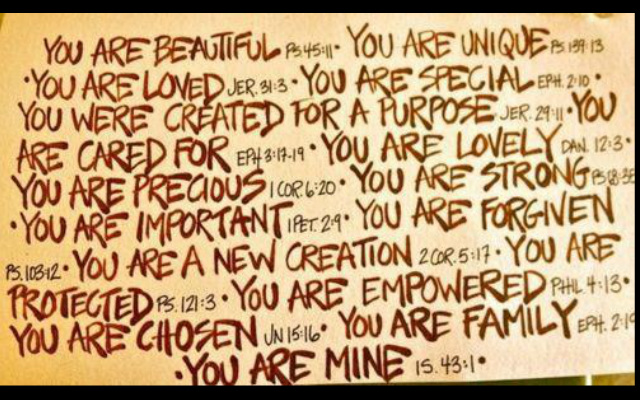 YOU ARE BEAUTIFUL PS.45:11 • YOU ARE UNIQUE PS.139:13
• YOU ARE LOVED JER. 31:3 • YOU ARE SPECIAL EPH. 2:10 •
YOU WERE CREATED FOR A PURPOSE JER. 29:11 • YOU
ARE CARED FOR EPH 3:17-19 • YOU ARE LOVELY DAN. 12:3 •
YOU ARE PRECIOUS 1 COR. 6:20 • YOU ARE STRONG
• YOU ARE IMPORTANT 1 PET. 2:9 • YOU ARE FORGIVEN
PS. 103:12 • YOU ARE A NEW CREATION 2 COR. 5:17 • YOU ARE
PROTECTED PS. 121:3 • YOU ARE EMPOWERED PHIL 4:13 •
YOU ARE CHOSEN JN 15:16 • YOU ARE FAMILY EPH.
• YOU ARE MINE IS. 43:1 •